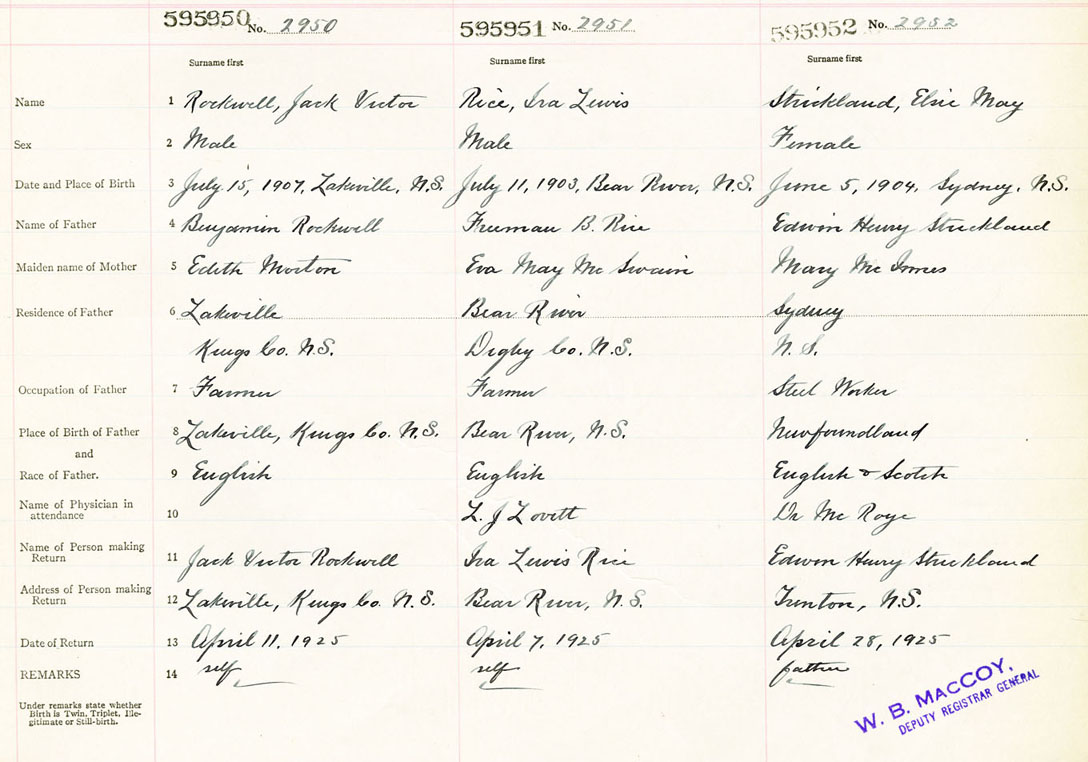 595950 No. 2950 595951 No. 2951 595952 No. 2952
Surname first Surname first Surname first
Name 1 Rockwell, Jack Victor Rice, Ira Lewis Strickland, Elsie May
Sex 2 Male Male Female
Date and Place of Birth 3 July 15, 1907, Lakeville, N.S. July 11, 1903, Bear River, N.S. June 5, 1904, Sydney, N.S.
Name of Father 4 Benjamin Rockwell Freeman B. Rice Edwin Henry Strickland
Maiden name of Mother 5 Edith Morton Eva May Mc Swain Mary Mc Innes
Residence of Father 6 Lakeville Bear River Sydney
Kings Co. N.S. Digby Co. N.S. N.S.
Occupation of Father 7 Farmer Farmer Steel Worker
Place of Birth of Father 8 Lakeville, Kings Co. N.S. Bear River, N.S. Newfoundland
and
Race of Father. 9 English English English & Scotch
Name of Physician in
attendance 10 L. J Lovett Dr Mc
Name of Person making
Return 11 Jack Victor Rockwell Ira Lewis Rice Edwin Henry Strickland
Address of Person making
Return 12 Lakeville, Kings Co. N.S. Bear River, N.S. Trenton, N.S.
Date of Return 13 April 11, 1925 April 7, 1925 April 28, 1925
REMARKS 14 self self father
Under remarks state whether
Birth is Twin, Triplet, Ille-
gitimate or Still-birth.
W. B. MACCOY,
DEPUTY REGISTRAR GENERAL